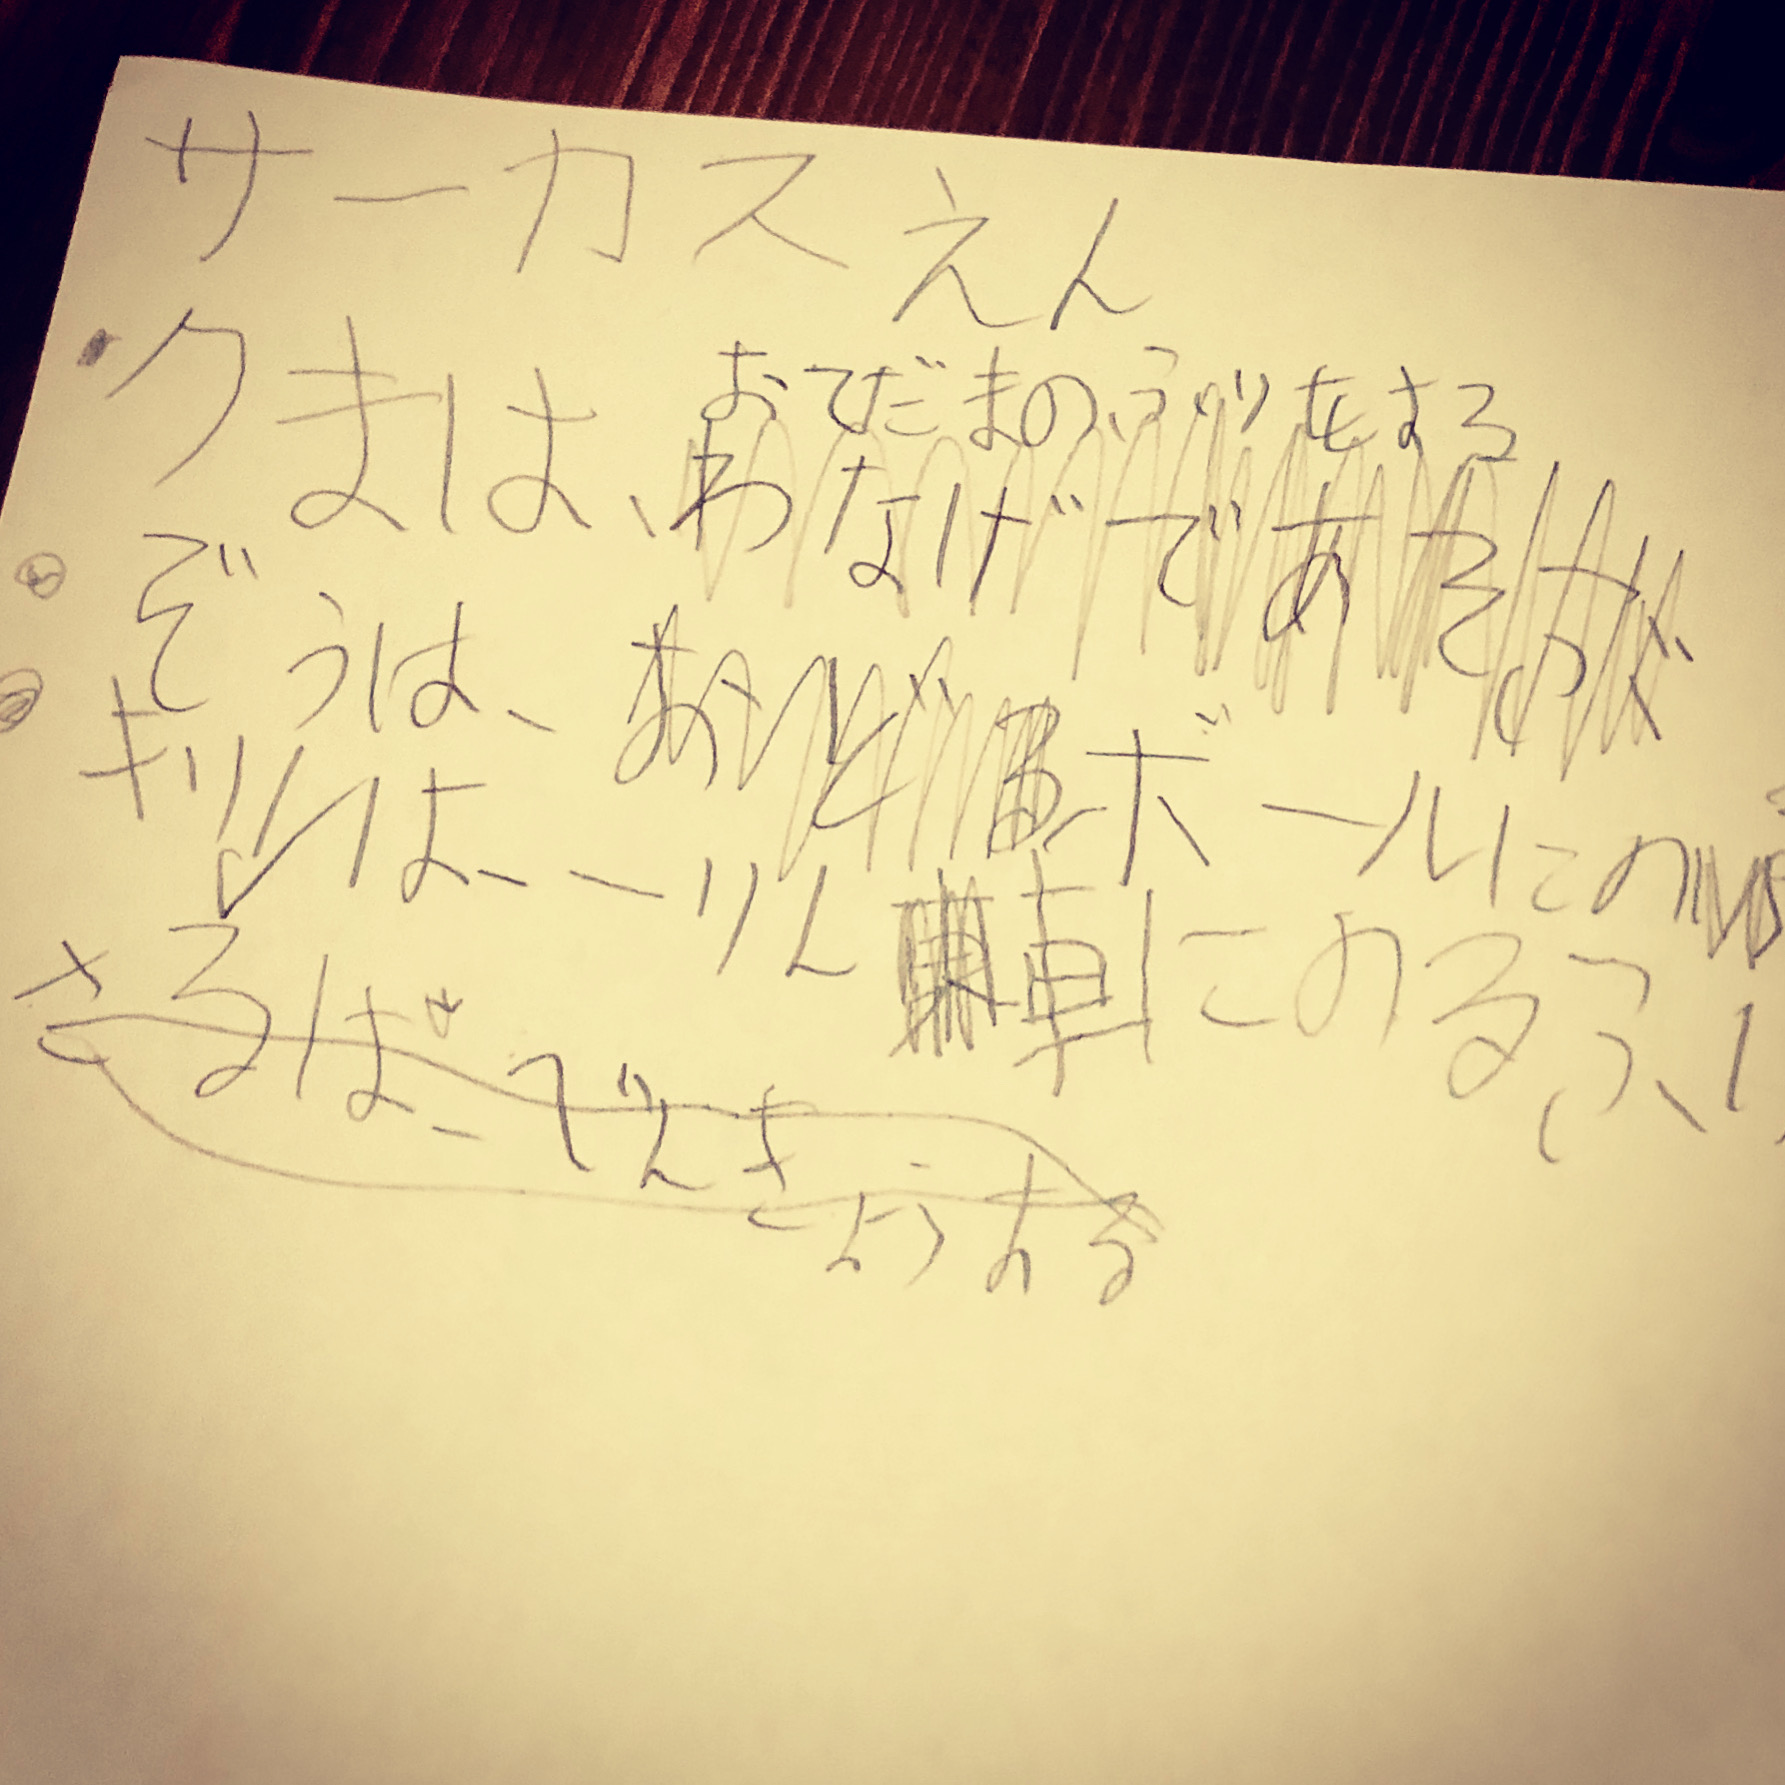 サーカスえん
・クまは、おてだまのふりをする
わなげであそが
ぞうは、おどるボールにの
キリンは、一りん車にのるふり
さるは、でんき
ようする